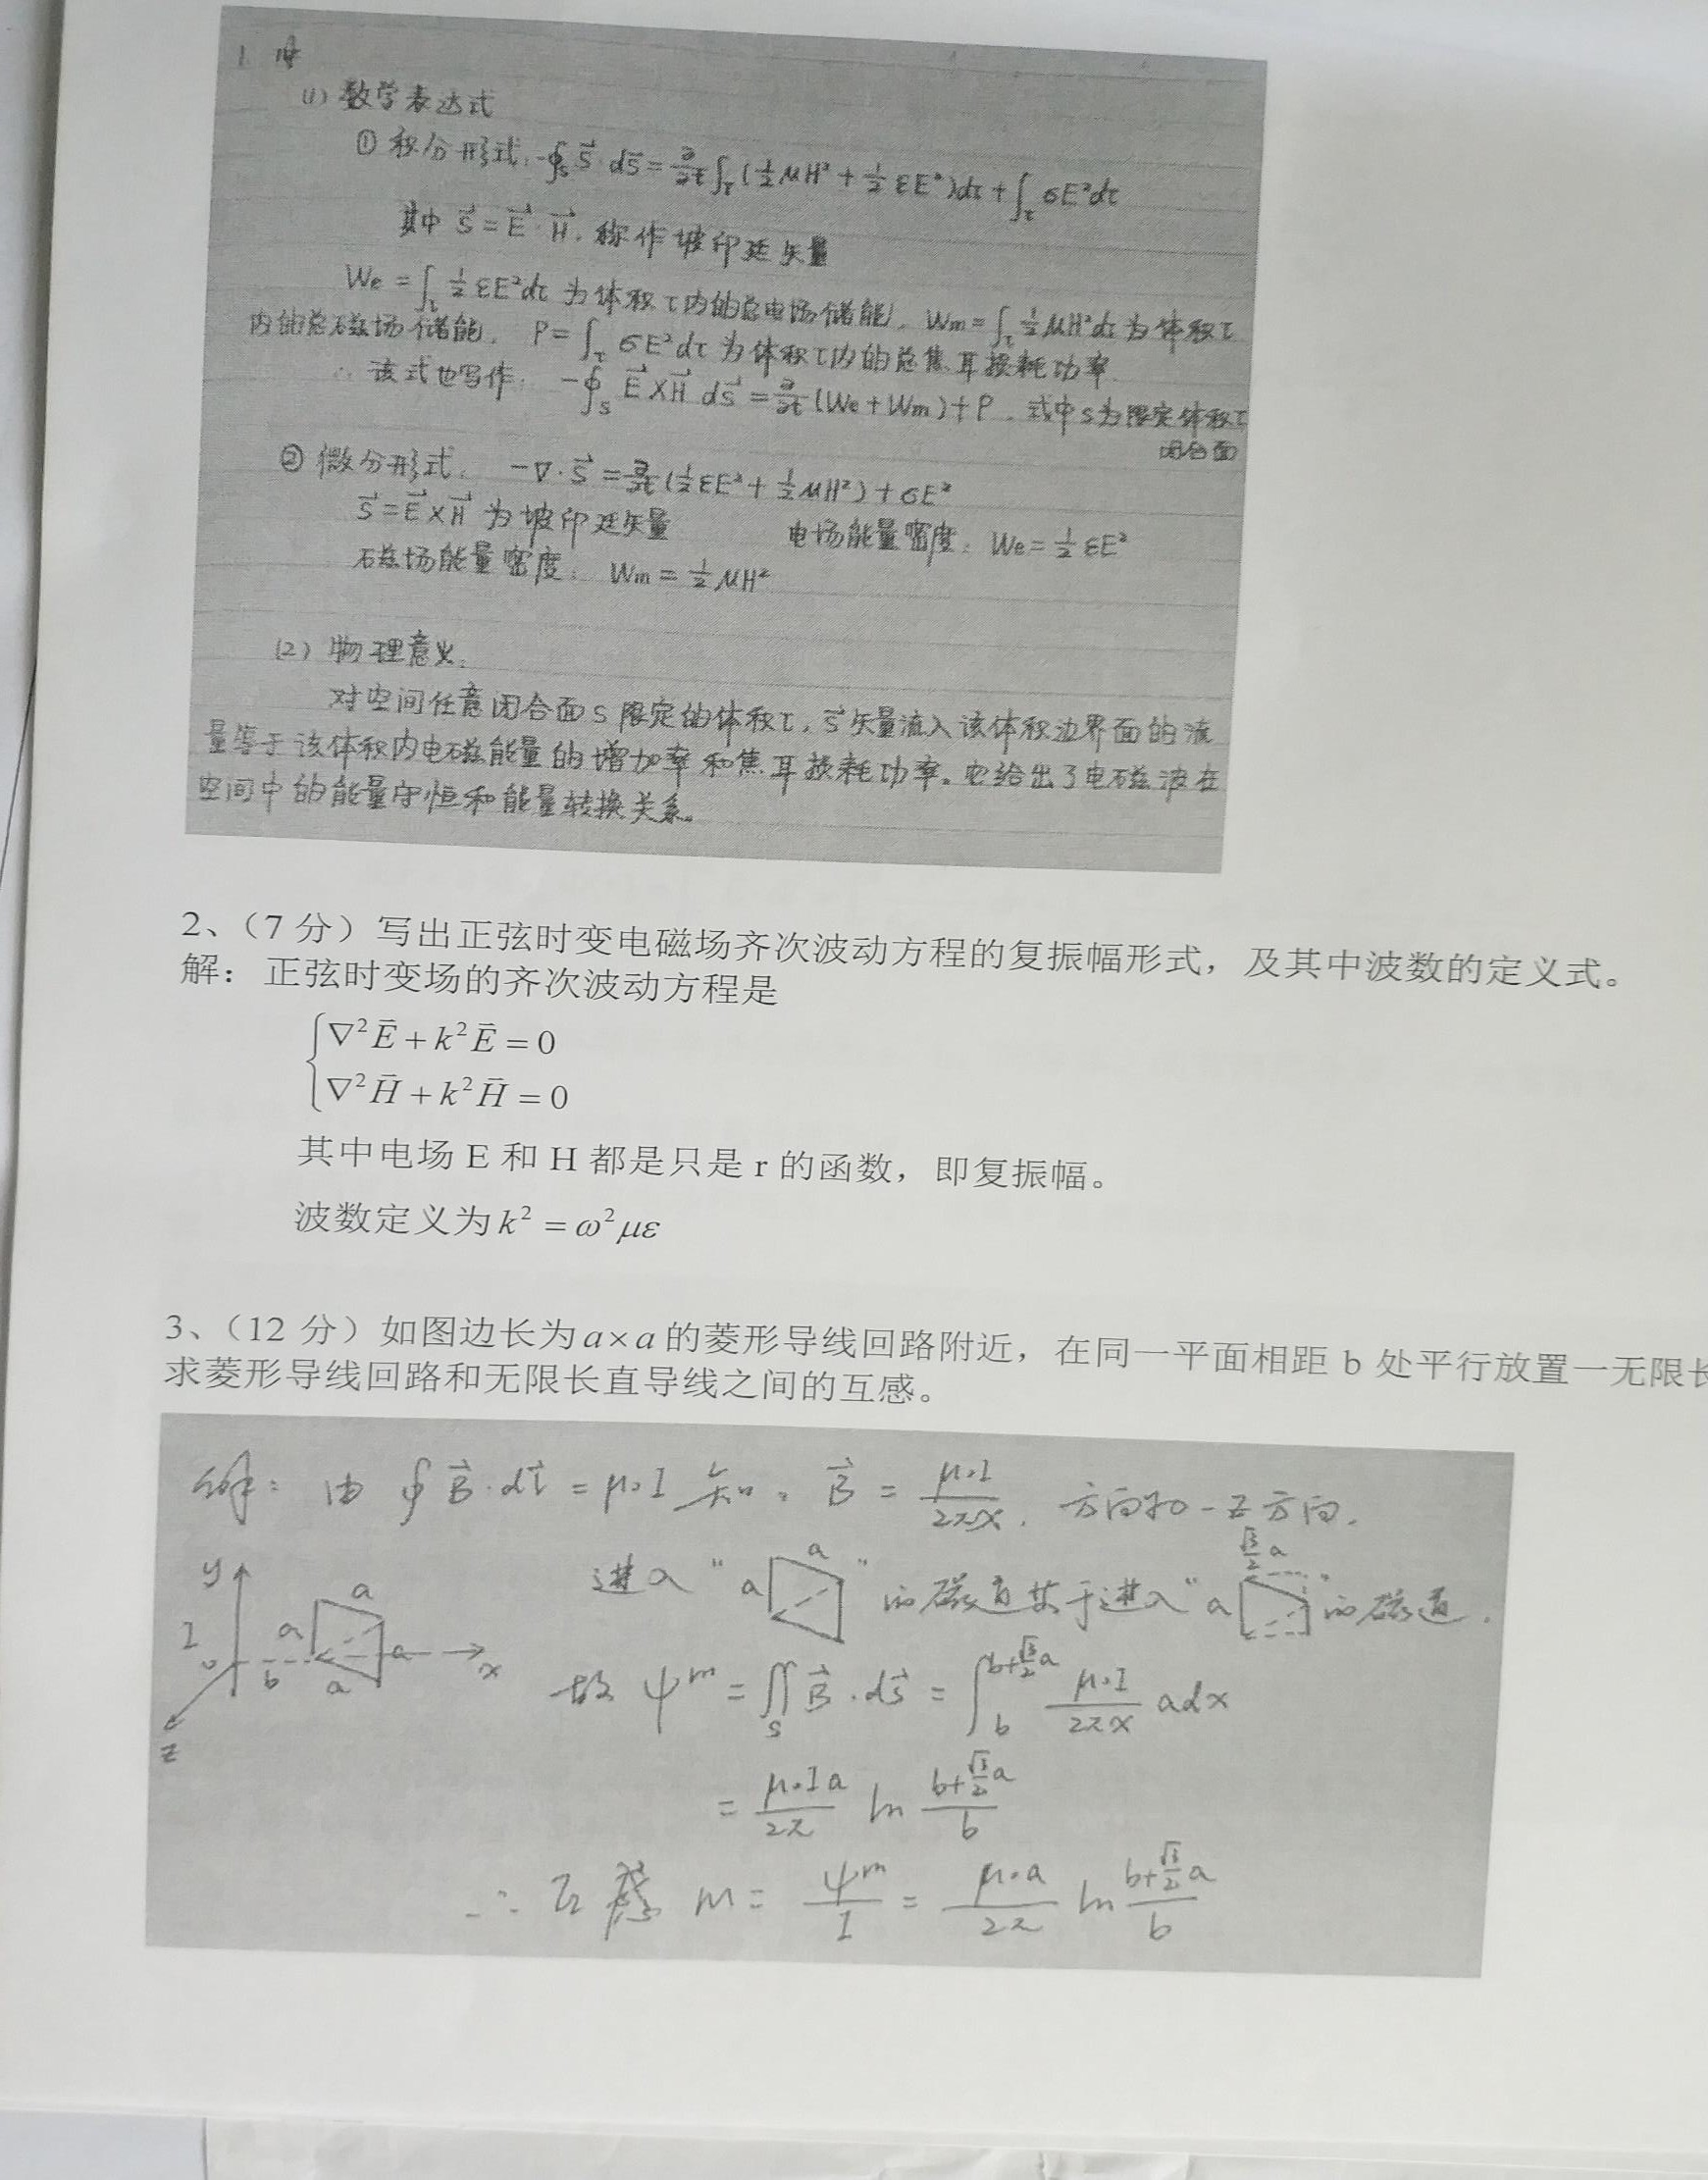 1 解
(1) 数学表达式
① 积分形式: -∮ₛ S⃗·dS⃗ = ∂/∂t ∫τ (½μH² + ½εE²)dτ + ∫τ σE²dτ
其中 S⃗ = E⃗·H⃗, 称作坡印廷矢量
We = ∫τ ½εE²dτ 为体积τ内的总电场储能, Wm = ∫τ ½μH²dτ 为体积τ
内的总磁场储能, P = ∫τ σE²dτ 为体积τ内的总焦耳损耗功率
∴ 该式也写作: -∮ₛ E⃗×H⃗ dS⃗ = ∂/∂t (We+Wm)+P, 式中S为限定体积τ
闭合面
② 微分形式: -∇·S⃗ = ∂/∂t (½εE² + ½μH²) + σE²
S⃗ = E⃗×H⃗ 为坡印廷矢量 电场能量密度: We = ½εE²
磁场能量密度: Wm = ½μH²
(2) 物理意义:
对空间任意闭合面S限定的体积τ, S⃗矢量流入该体积边界面的流
量等于该体积内电磁能量的增加率和焦耳损耗功率。它给出了电磁波在
空间中的能量守恒和能量转换关系。
2、（7 分）写出正弦时变电磁场齐次波动方程的复振幅形式，及其中波数的定义式。
解：正弦时变场的齐次波动方程是
∇²Ē + k²Ē = 0
∇²H̄ + k²H̄ = 0
其中电场 E 和 H 都是只是 r 的函数，即复振幅。
波数定义为 k² = ω²με
3、（12 分）如图边长为 a×a 的菱形导线回路附近，在同一平面相距 b 处平行放置一无限长
求菱形导线回路和无限长直导线之间的互感。
解: 由 ∮ B⃗·dl⃗ = μ₀I 知, B⃗ = μ₀I/2πx, 方向为-z方向.
进入 " a a " 的磁通等于进入 " a √3/2 a 的磁通.
y I o b a a a a x z
故 ψᵐ = ∬ₛ B⃗·ds⃗ = ∫_b^{b+√3/2 a} μ₀I/2πx adx
= μ₀Ia/2π ln (b+√3/2 a)/b
∴ 互感 M = ψᵐ/I = μ₀a/2π ln (b+√3/2 a)/b